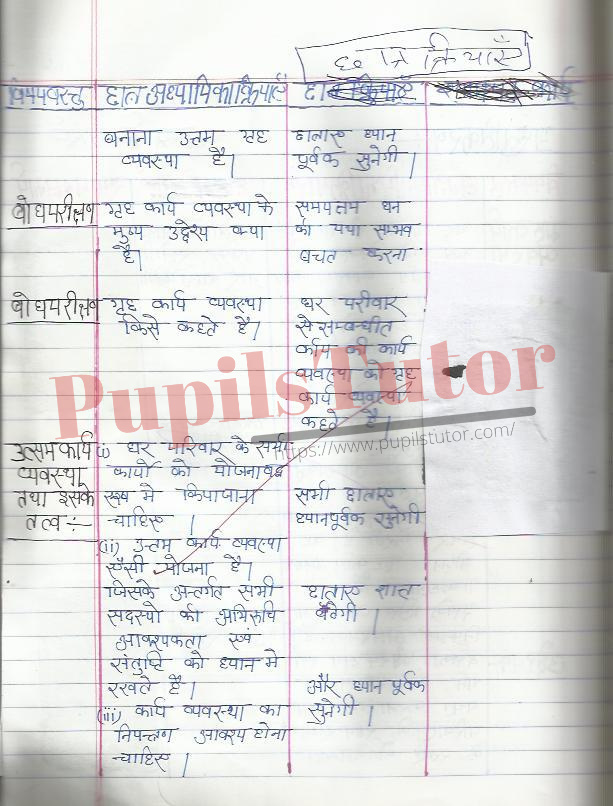 छात्र क्रियाएँ
विषयवस्तु छात्र अध्यापिका क्रियाएँ
बनाना उत्तम गृह
व्यवस्था है।
छात्राए ध्यान
पूर्वक सुनेगी
बोधपरीक्षण
गृह कार्य व्यवस्था के
मुख्य उद्देस क्या
है।
समय श्रम धन
की यथा सम्भव
बचत करना
बोधपरीक्षण
गृह कार्य व्यवस्था
किसे कहते है।
घर परीवार
से सम्बन्धीत
कार्य की कार्य
व्यवस्था को गृह
कार्य व्यवस्था
कहते है।
PupilsTutor
https://www.pupilstutor.com/
उत्तम कार्य
व्यवस्था
तथा इसके
तत्व :-
(i) घर परिवार के सभी
कार्यो को योजनाबद्ध
रूप मे किया जाना
चाहिए।
सभी छात्राए
ध्यानपूर्वक सुनेगी
(ii) उत्तम कार्य व्यवस्था
ऐसी योजना है।
जिसके अन्तर्गत सभी
सदस्यो की अभिरुचि
आवश्यकता एवं
संतुष्टि को ध्यान मे
रखते है।
छात्राए शान्त
बैठेगी।
और ध्यान पूर्वक
सुनेगी।
(iii) कार्य व्यवस्था का
नियन्त्रण आवश्य होना
चाहिए।